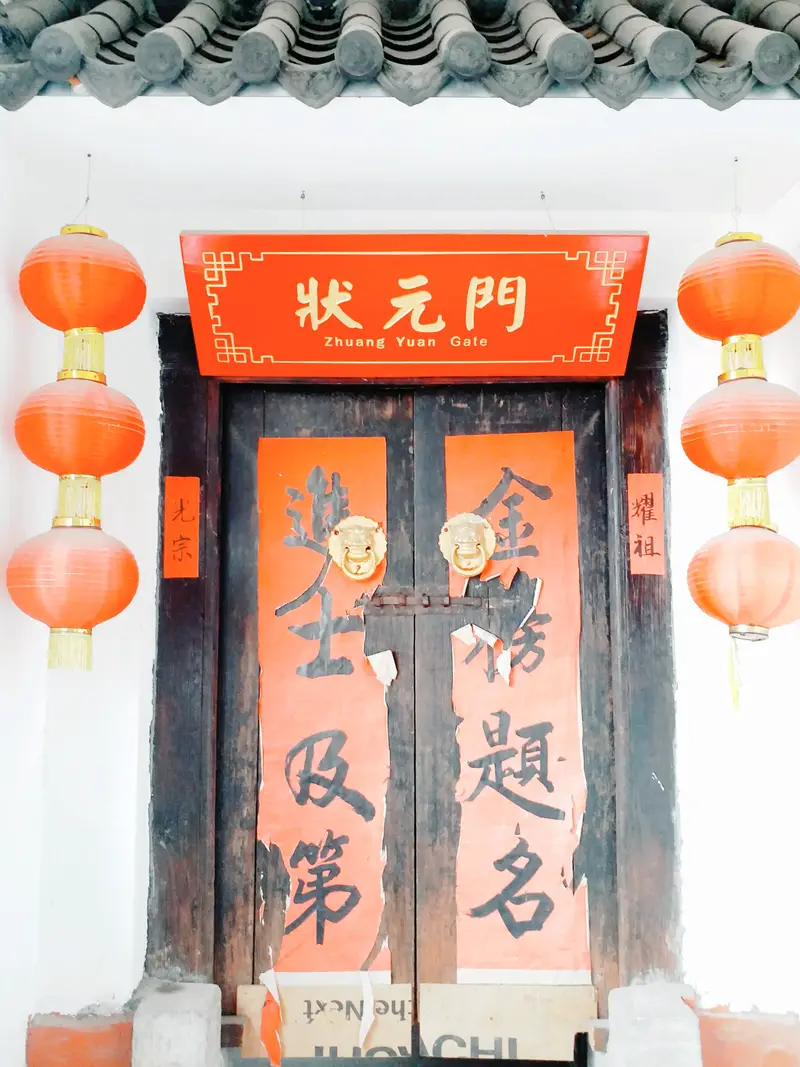 狀元門
Zhuang Yuan Gate
光宗
進士及第
金榜題名
耀祖
the Next